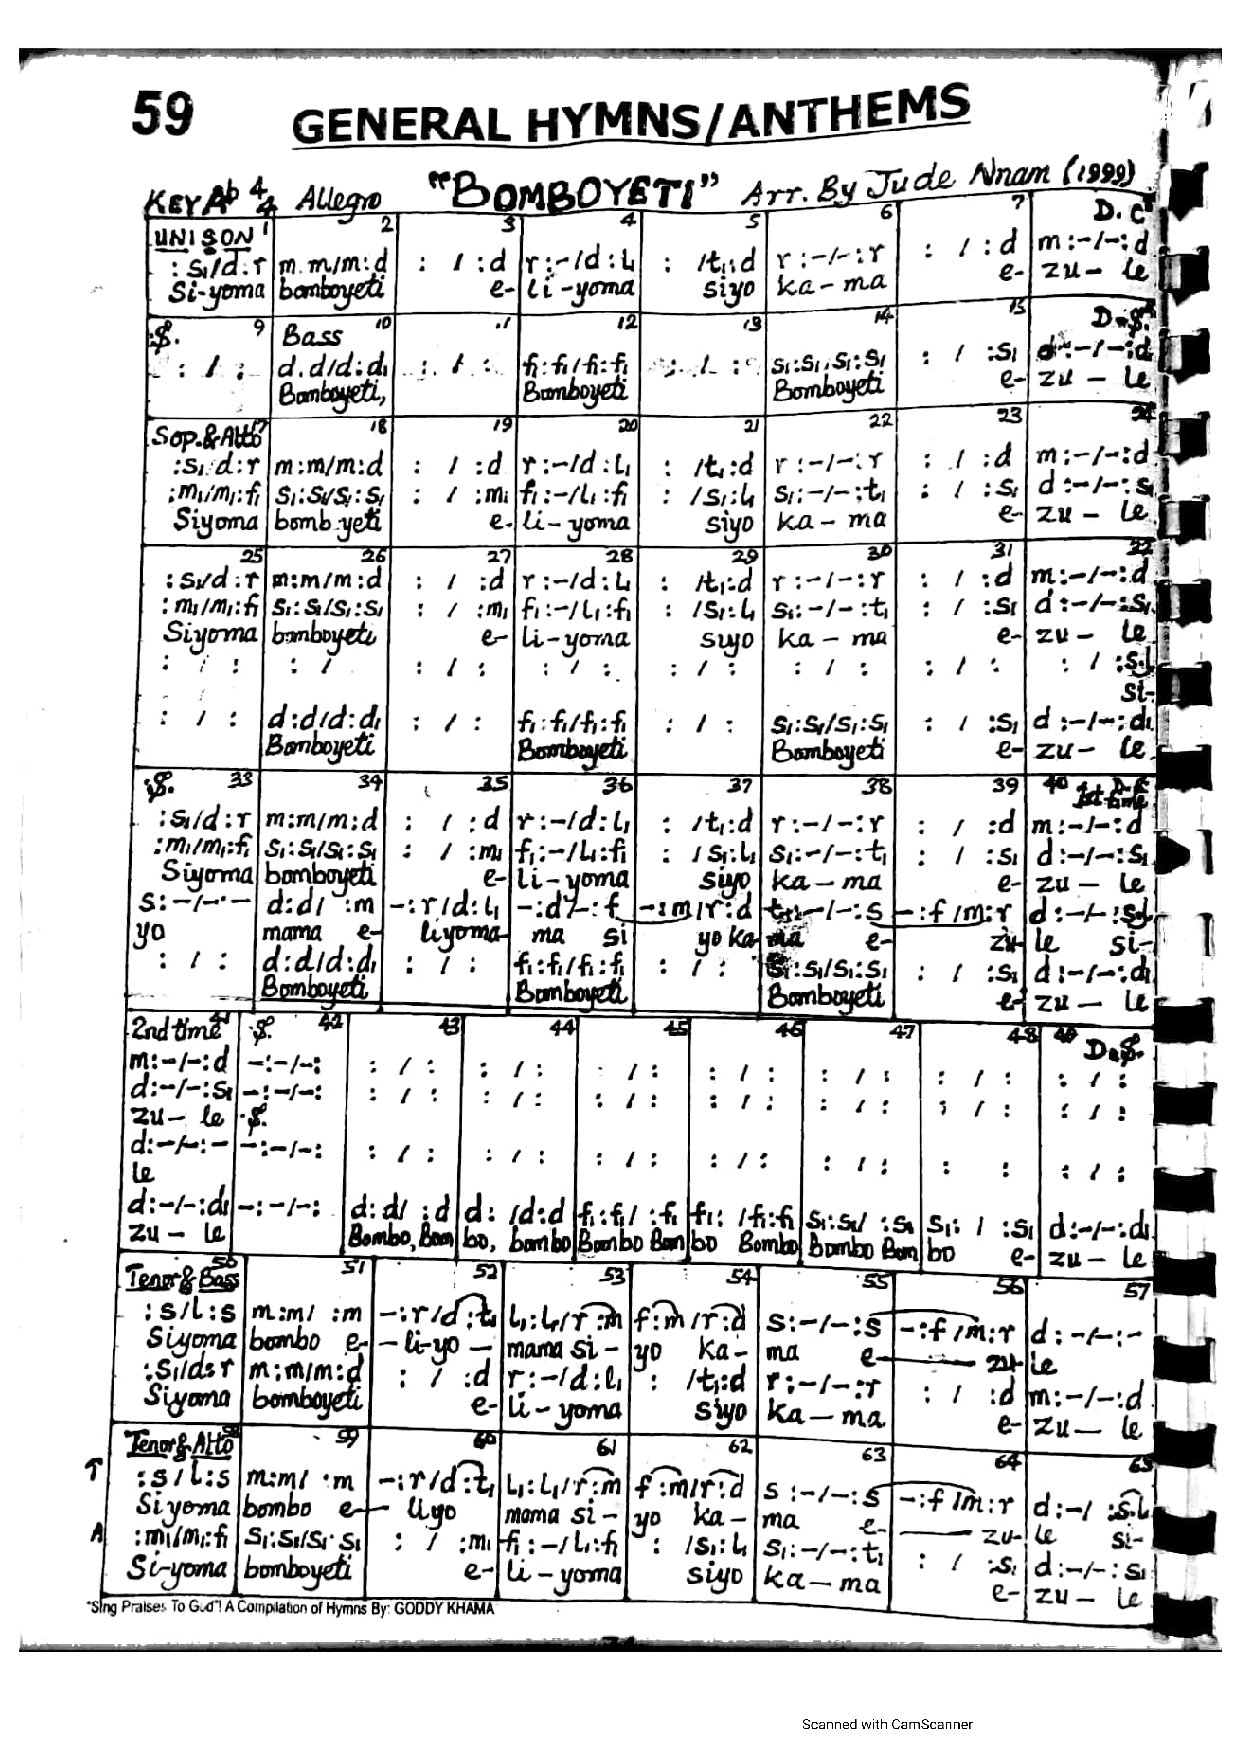 59 GENERAL HYMNS/ANTHEMS
KEY Ab 4/4 Allegro "BOMBOYETI" Arr. By Jude Nnam (1999)
UNISON 1 2 3 4 5 6 7 D.C
:s₁/d:r m.m/m:d : / :d r:-/d:l₁ : /t₁:d r:-/-:r : / :d m:-/-:d
Si-yoma bomboyeti e- li-yoma siyo ka-ma e- zu- le
:S. 9 Bass 10 11 12 13 14 15 D.S.
: / : d.d/d:d₁ : / : f₁:f₁/f₁:f₁ : / : s₁:s₁.s₁:s₁ : / :s₁ d:-/-:d₁
Bomboyeti, Bomboyeti Bomboyeti e- zu - le
Sop.&Alto 18 19 20 21 22 23 24
:s₁/d:r m:m/m:d : / :d r:-/d:l₁ : /t₁:d r:-/-:r : / :d m:-/-:d
:m₁/m₁:f₁ s₁:s₁/s₁:s₁ : / :m₁ f₁:-/l₁:f₁ : /s₁:l₁ s₁:-/-:t₁ : / :s₁ d:-/-:s₁
Siyoma bomb.yeti e- li-yoma siyo ka-ma e- zu - le
25 26 27 28 29 30 31 32
:s₁/d:r m:m/m:d : / :d r:-/d:l₁ : /t₁:d r:-/-:r : / :d m:-/-:d
:m₁/m₁:f₁ s₁:s₁/s₁:s₁ : / :m₁ f₁:-/l₁:f₁ : /s₁:l₁ s₁:-/-:t₁ : / :s₁ d:-/-:s₁
Siyoma bomboyeti e- li-yoma siyo ka-ma e- zu- le
: / : : / : / : : / : : / : : / : : / : : / :s.l
si-
: / : d:d/d:d₁ : / : f₁:f₁/f₁:f₁ : / : s₁:s₁/s₁:s₁ : / :s₁ d:-/-:d₁
Bomboyeti Bomboyeti Bomboyeti e- zu- le
:S. 33 34 35 36 37 38 39 40 1st time
:s₁/d:r m:m/m:d : / :d r:-/d:l₁ : /t₁:d r:-/-:r : / :d m:-/-:d
:m₁/m₁:f₁ s₁:s₁/s₁:s₁ : / :m₁ f₁:-/l₁:f₁ : /s₁:l₁ s₁:-/-:t₁ : / :s₁ d:-/-:s₁
Siyoma bomboyeti e- li-yoma siyo ka-ma e- zu - le
s:-/-:- d:d/ :m -:r/d:l₁ -:d/-:f -:m/r:d t₁:-/-:s -:f/m:r d:-/-:s.l
yo mama e- liyoma- ma si yo ka ma e- zu- le si-
: / : d:d/d:d₁ : / : f₁:f₁/f₁:f₁ : / : s₁:s₁/s₁:s₁ : / :s₁ d:-/-:d₁
Bomboyeti Bomboyeti Bomboyeti e- zu - le
2nd time 41 :S. 42 43 44 45 46 47 48 49 D.S.
m:-/-:d -:-/-: : / : : / : : / : : / : : / : : / : : / :
d:-/-:s₁ -:-/-: : / : : / : : / : : / : : / : : / : : / :
zu- le :S.
d:-/-:- -:-/-: : / : : / : : / : : / : : / : : : : / :
le
d:-/-:d₁ -:-/-: d:d/ :d d: /d:d f₁:f₁/ :f₁ f₁: /f₁:f₁ s₁:s₁/ :s₁ s₁: / :s₁ d:-/-:d₁
zu - le Bombo, Bom bo, bombo Bombo Bom bo Bombo Bombo Bom bo e- zu - le
Tenor & Bass 50 51 52 53 54 55 56 57
:s/l:s m:m/ :m -:r/d:t₁ l₁:l₁/r:m f:m/r:d s:-/-:s -:f/m:r d:-/-:-
Siyoma bombo e- - li-yo - mama si- yo ka- ma e- zu- le
:s₁/d:r m:m/m:d : / :d r:-/d:l₁ : /t₁:d r:-/-:r : / :d m:-/-:d
Siyoma bomboyeti e- li-yoma siyo ka-ma e- zu- le
Tenor & Alto 58 59 60 61 62 63 64 65
T :s/l:s m:m/ :m -:r/d:t₁ l₁:l₁/r:m f:m/r:d s:-/-:s -:f/m:r d:-/ :s.l
Siyoma bombo e- liyo mama si- yo ka- ma e- zu- le si-
A :m₁/m₁:f₁ s₁:s₁/s₁:s₁ : / :m₁ f₁:-/l₁:f₁ : /s₁:l₁ s₁:-/-:t₁ : / :s₁ d:-/-:s₁
Si-yoma bomboyeti e- li-yoma siyo ka-ma e- zu- le
"Sing Praises To God"! A Compilation of Hymns By: GODDY KHAMA
Scanned with CamScanner